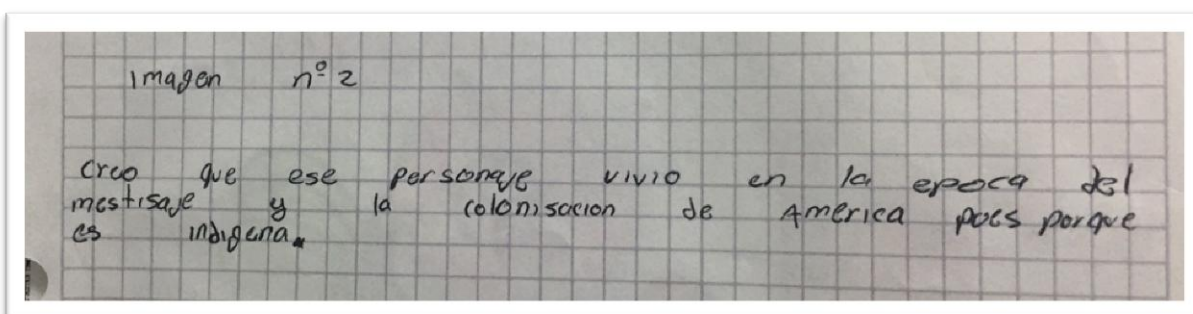 imagen nº 2
creo que ese personaje vivio en la epoca del
mestisaje y la colonisacion de America pues porque
es indigena.